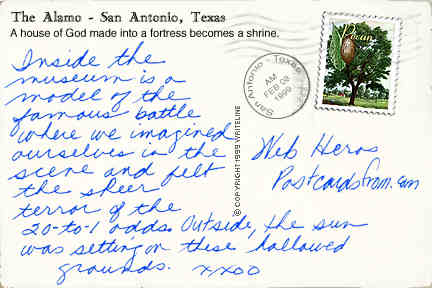 The Alamo - San Antonio, Texas
A house of God made into a fortress becomes a shrine.
Inside the
museum is a
model of the
famous battle
where we imagined
ourselves in the
scene and felt
the sheer
terror of the
20-to-1 odds. Outside, the sun
was setting on these hallowed
grounds. xxoo
Pecan
San Antonio - Texas
AM
FEB 08
1999
© COPYRIGHT 1999 WRITELINE
Web Heros
Postcardsfrom.com